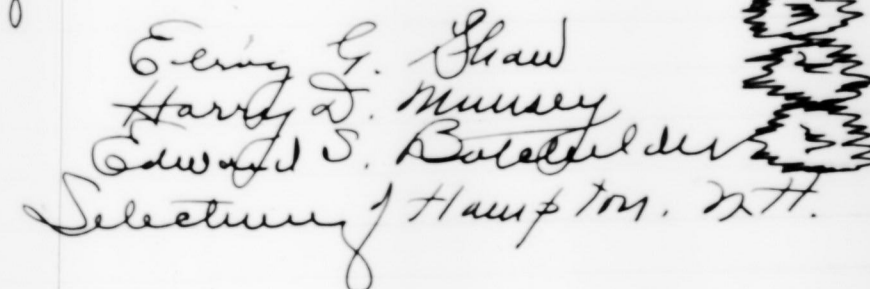 Elroy G. Shaw
Harry D. Munsey
Edward S. Batchelder
Selectmen of Hampton. N.H.